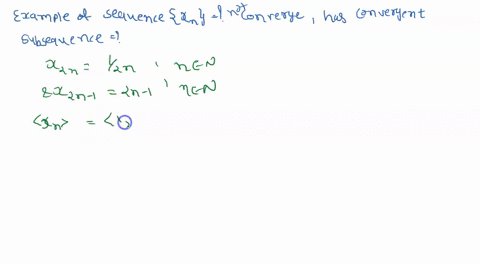 Example of sequence {xn} =? not Converge, has convergent
subsequence =?
x2n = 1/2n , n∈N
& x2n-1 = 2n-1 , n∈N
<xn> = <x